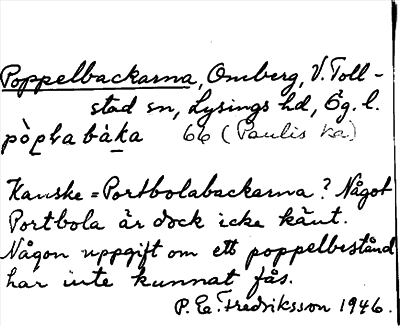 Poppelbackarna, Omberg, V. Toll-
stad sn, Lysings hd, Ög. l.
pòpḷabàka 66 (Paulis ka)
Kanske = Portbolabackarna? Något
Portbola är dock icke känt.
Någon uppgift om ett poppelbestånd
har inte kunnat fås.
P. E. Fredriksson 1946.